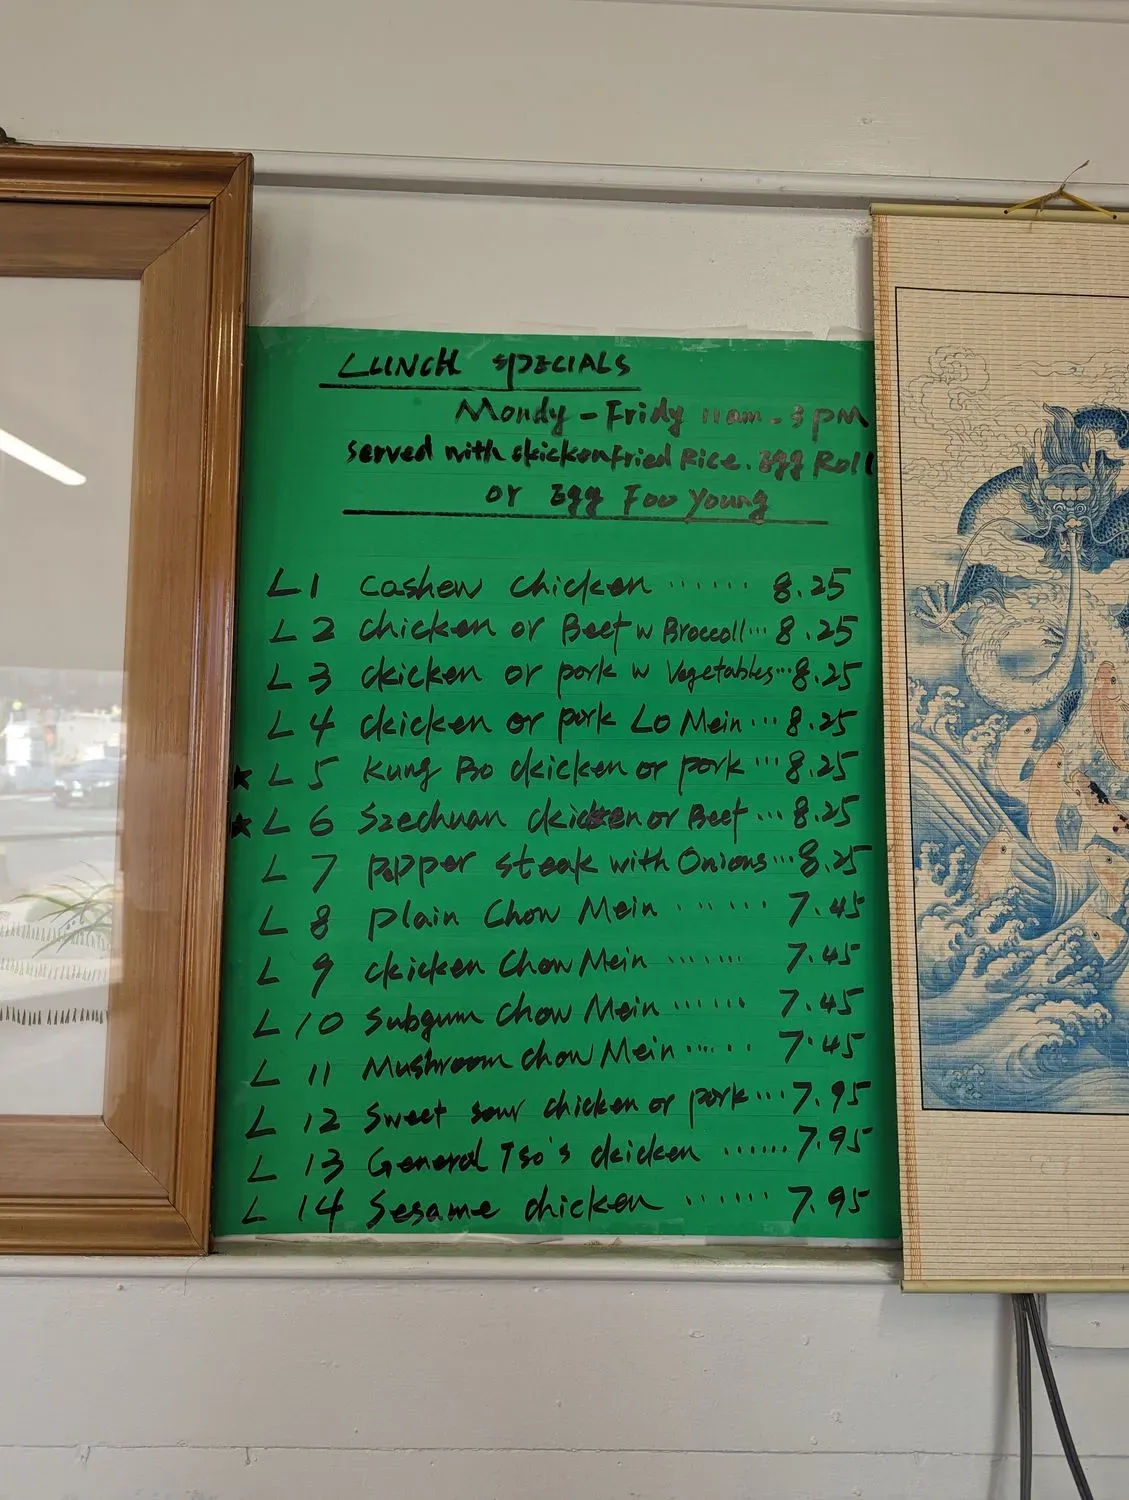 LUNCH SPECIALS
Mondy - Fridy 11am - 3PM
served with chicken fried Rice. Egg Roll
or Egg Foo Young
L1 cashew chicken ...... 8.25
L 2 chicken or Beef w Broccoll... 8.25
L 3 chicken or pork w Vegetables... 8.25
L 4 chicken or pork Lo Mein ... 8.25
★ L 5 Kung Bo chicken or pork ... 8.25
★ L 6 Szechuan chicken or Beef ... 8.25
L 7 pepper steak with Onions ... 8.25
L 8 plain Chow Mein ...... 7.45
L 9 chicken Chow Mein ....... 7.45
L 10 Subgum Chow Mein ....... 7.45
L 11 Mushroom Chow Mein ...... 7.45
L 12 Sweet sour chicken or pork ... 7.95
L 13 General Tso's chicken ...... 7.95
L 14 Sesame chicken ....... 7.95